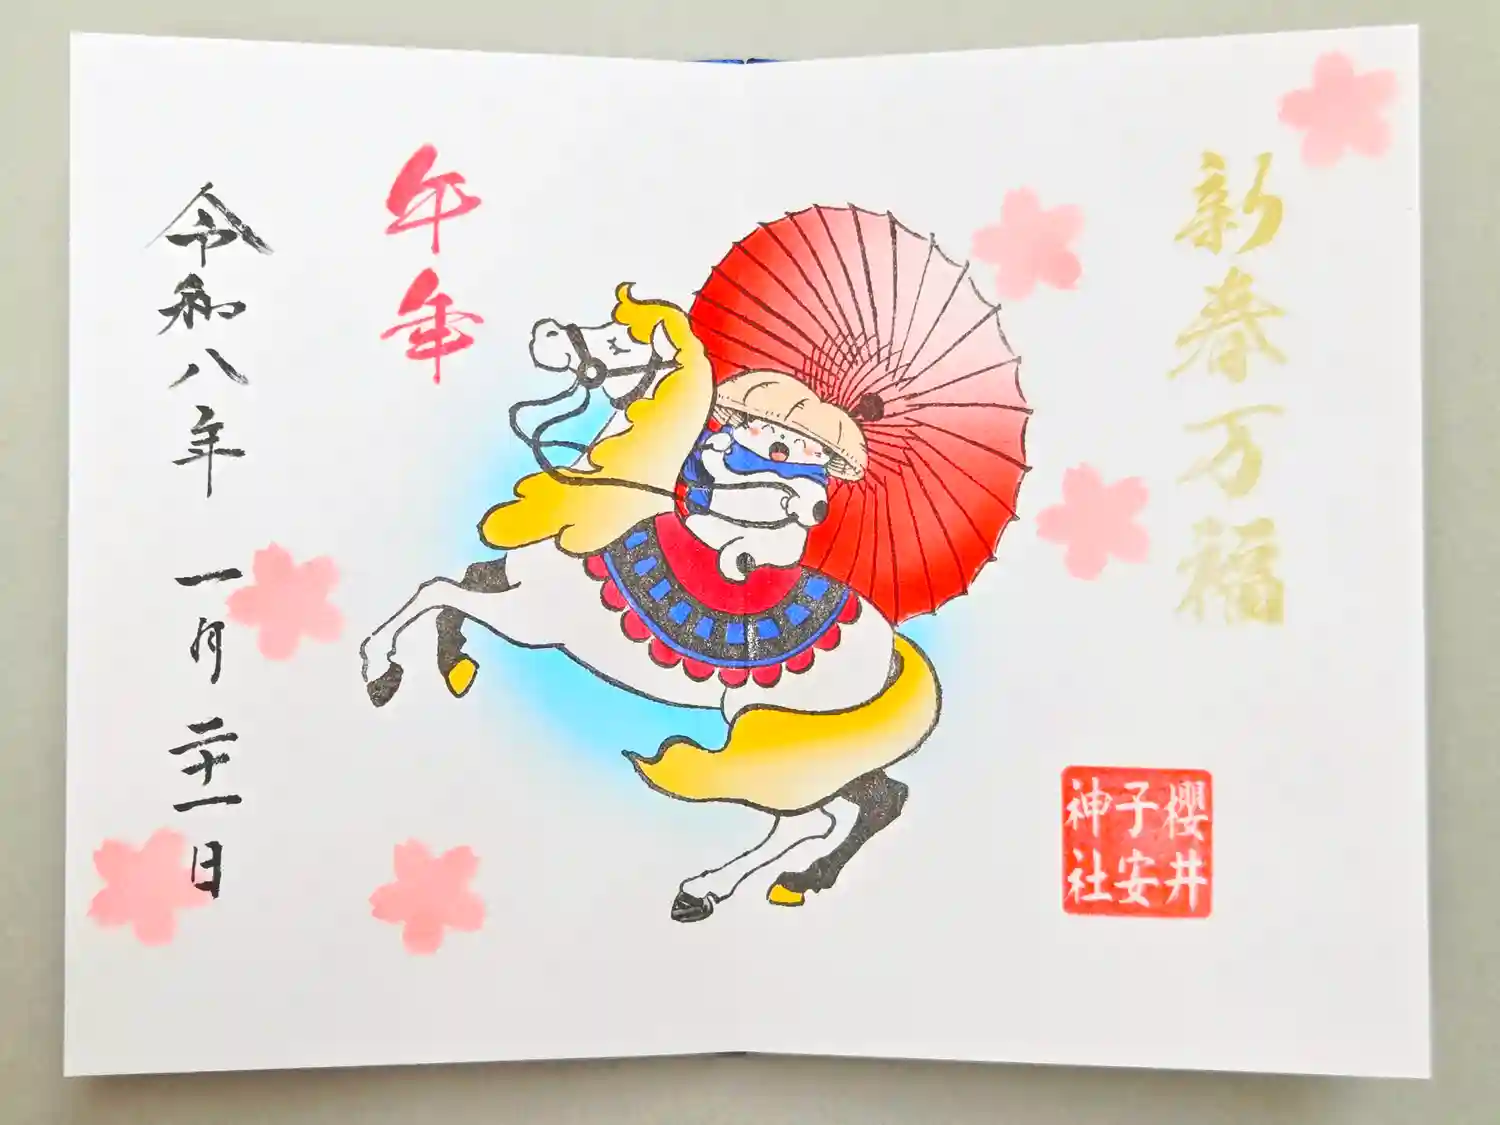 新春万福
櫻井
子安
神社
午年
令和八年 一月二十一日